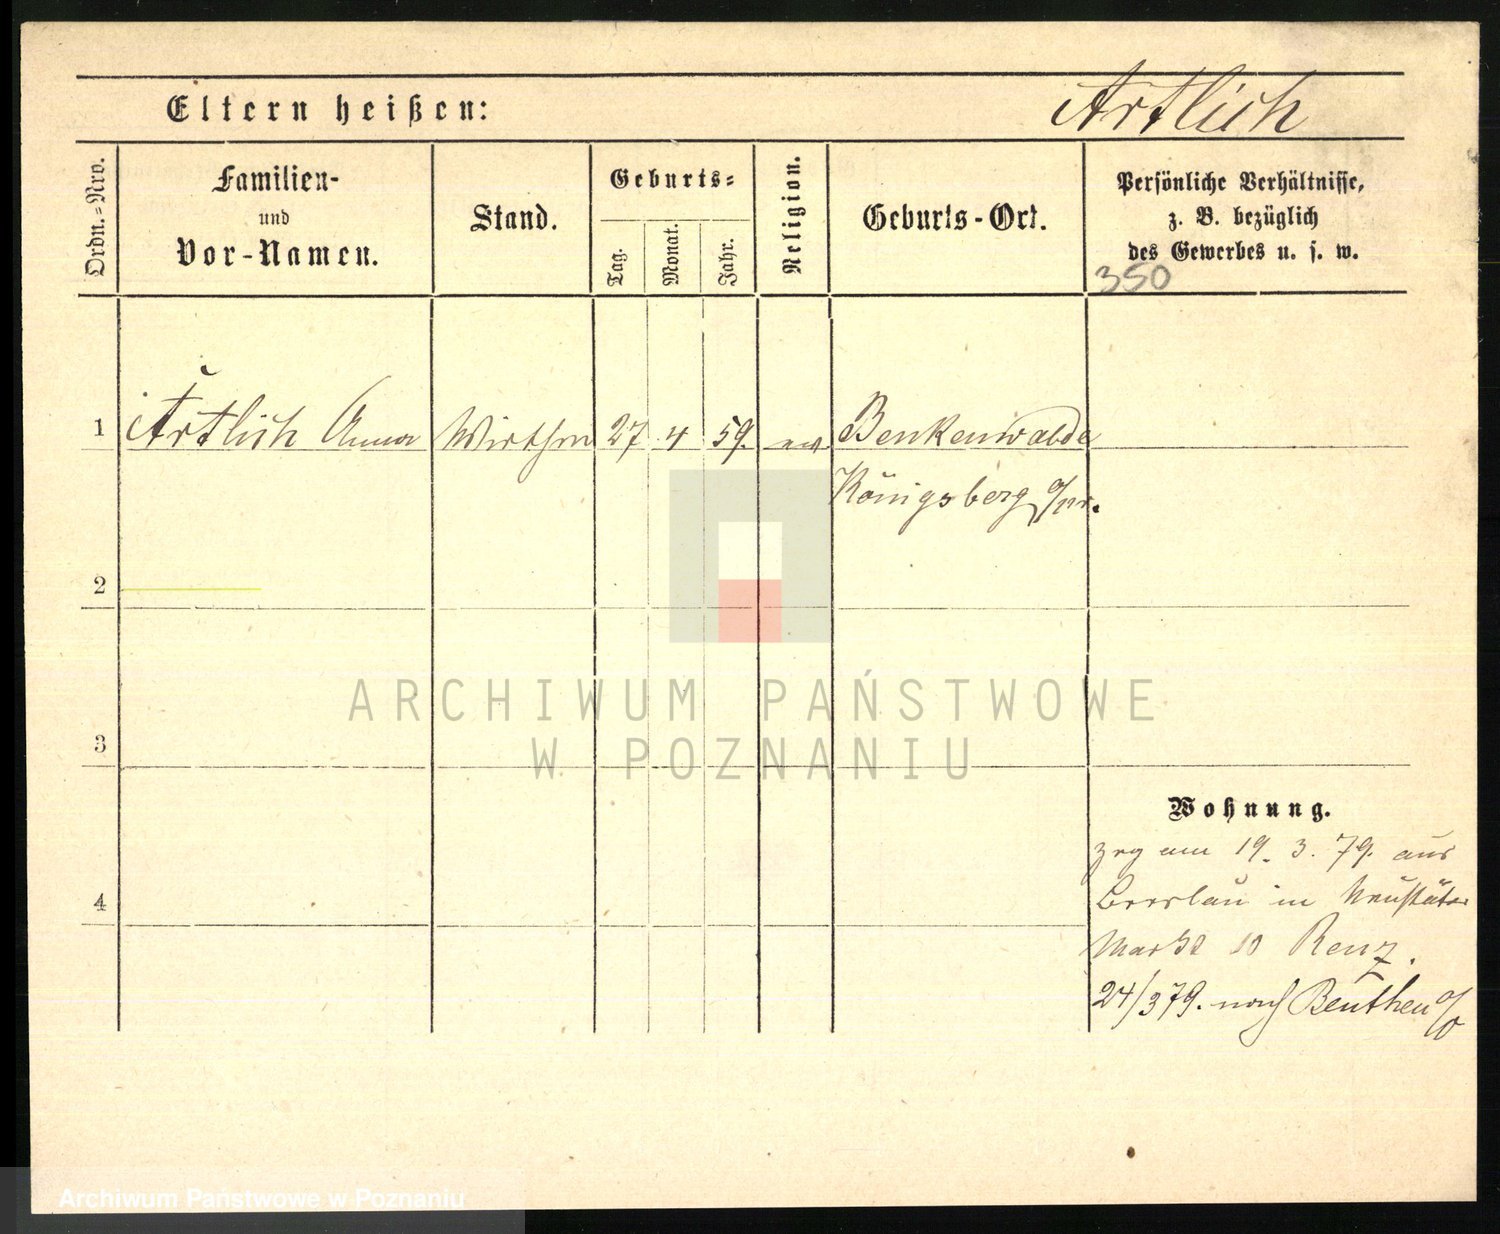 Eltern heißen: Artlich
Ordn.-Nro.
Familien-
und
Vor-Namen.
Stand.
Geburts-
Tag.
Monat.
Jahr.
Religion.
Geburts-Ort.
Persönliche Verhältnisse,
z. B. bezüglich
des Gewerbes u. s. w.
350
1 Artlich Anna Wirthin 27 4 59. ev Benkenwalde
Königsberg o/pr.
2
3
4
ARCHIWUM PAŃSTWOWE
W POZNANIU
Wohnung.
zzg am 19. 3. 79. aus
Breslau in Neustädter
Markt 10 Renz.
24/3 79. nach Beuthen o/O
Archiwum Państwowe w Poznaniu